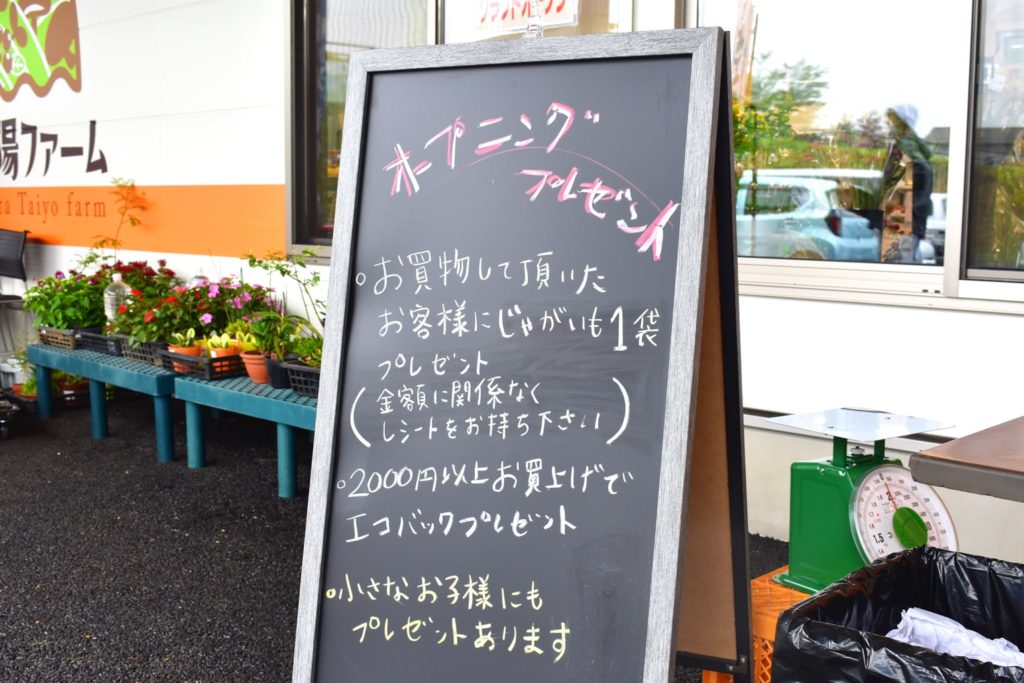 グランドオープン
陽ファーム
ra Taiyo farm
オープニング
プレゼント
○お買物して頂いた
お客様にじゃがいも1袋
プレゼント
(金額に関係なく
レシートをお持ち下さい)
○2000円以上お買上げで
エコバックプレゼント
○小さなお子様にも
プレゼントあります
1.5